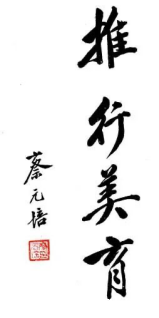 推行美育
蔡元培